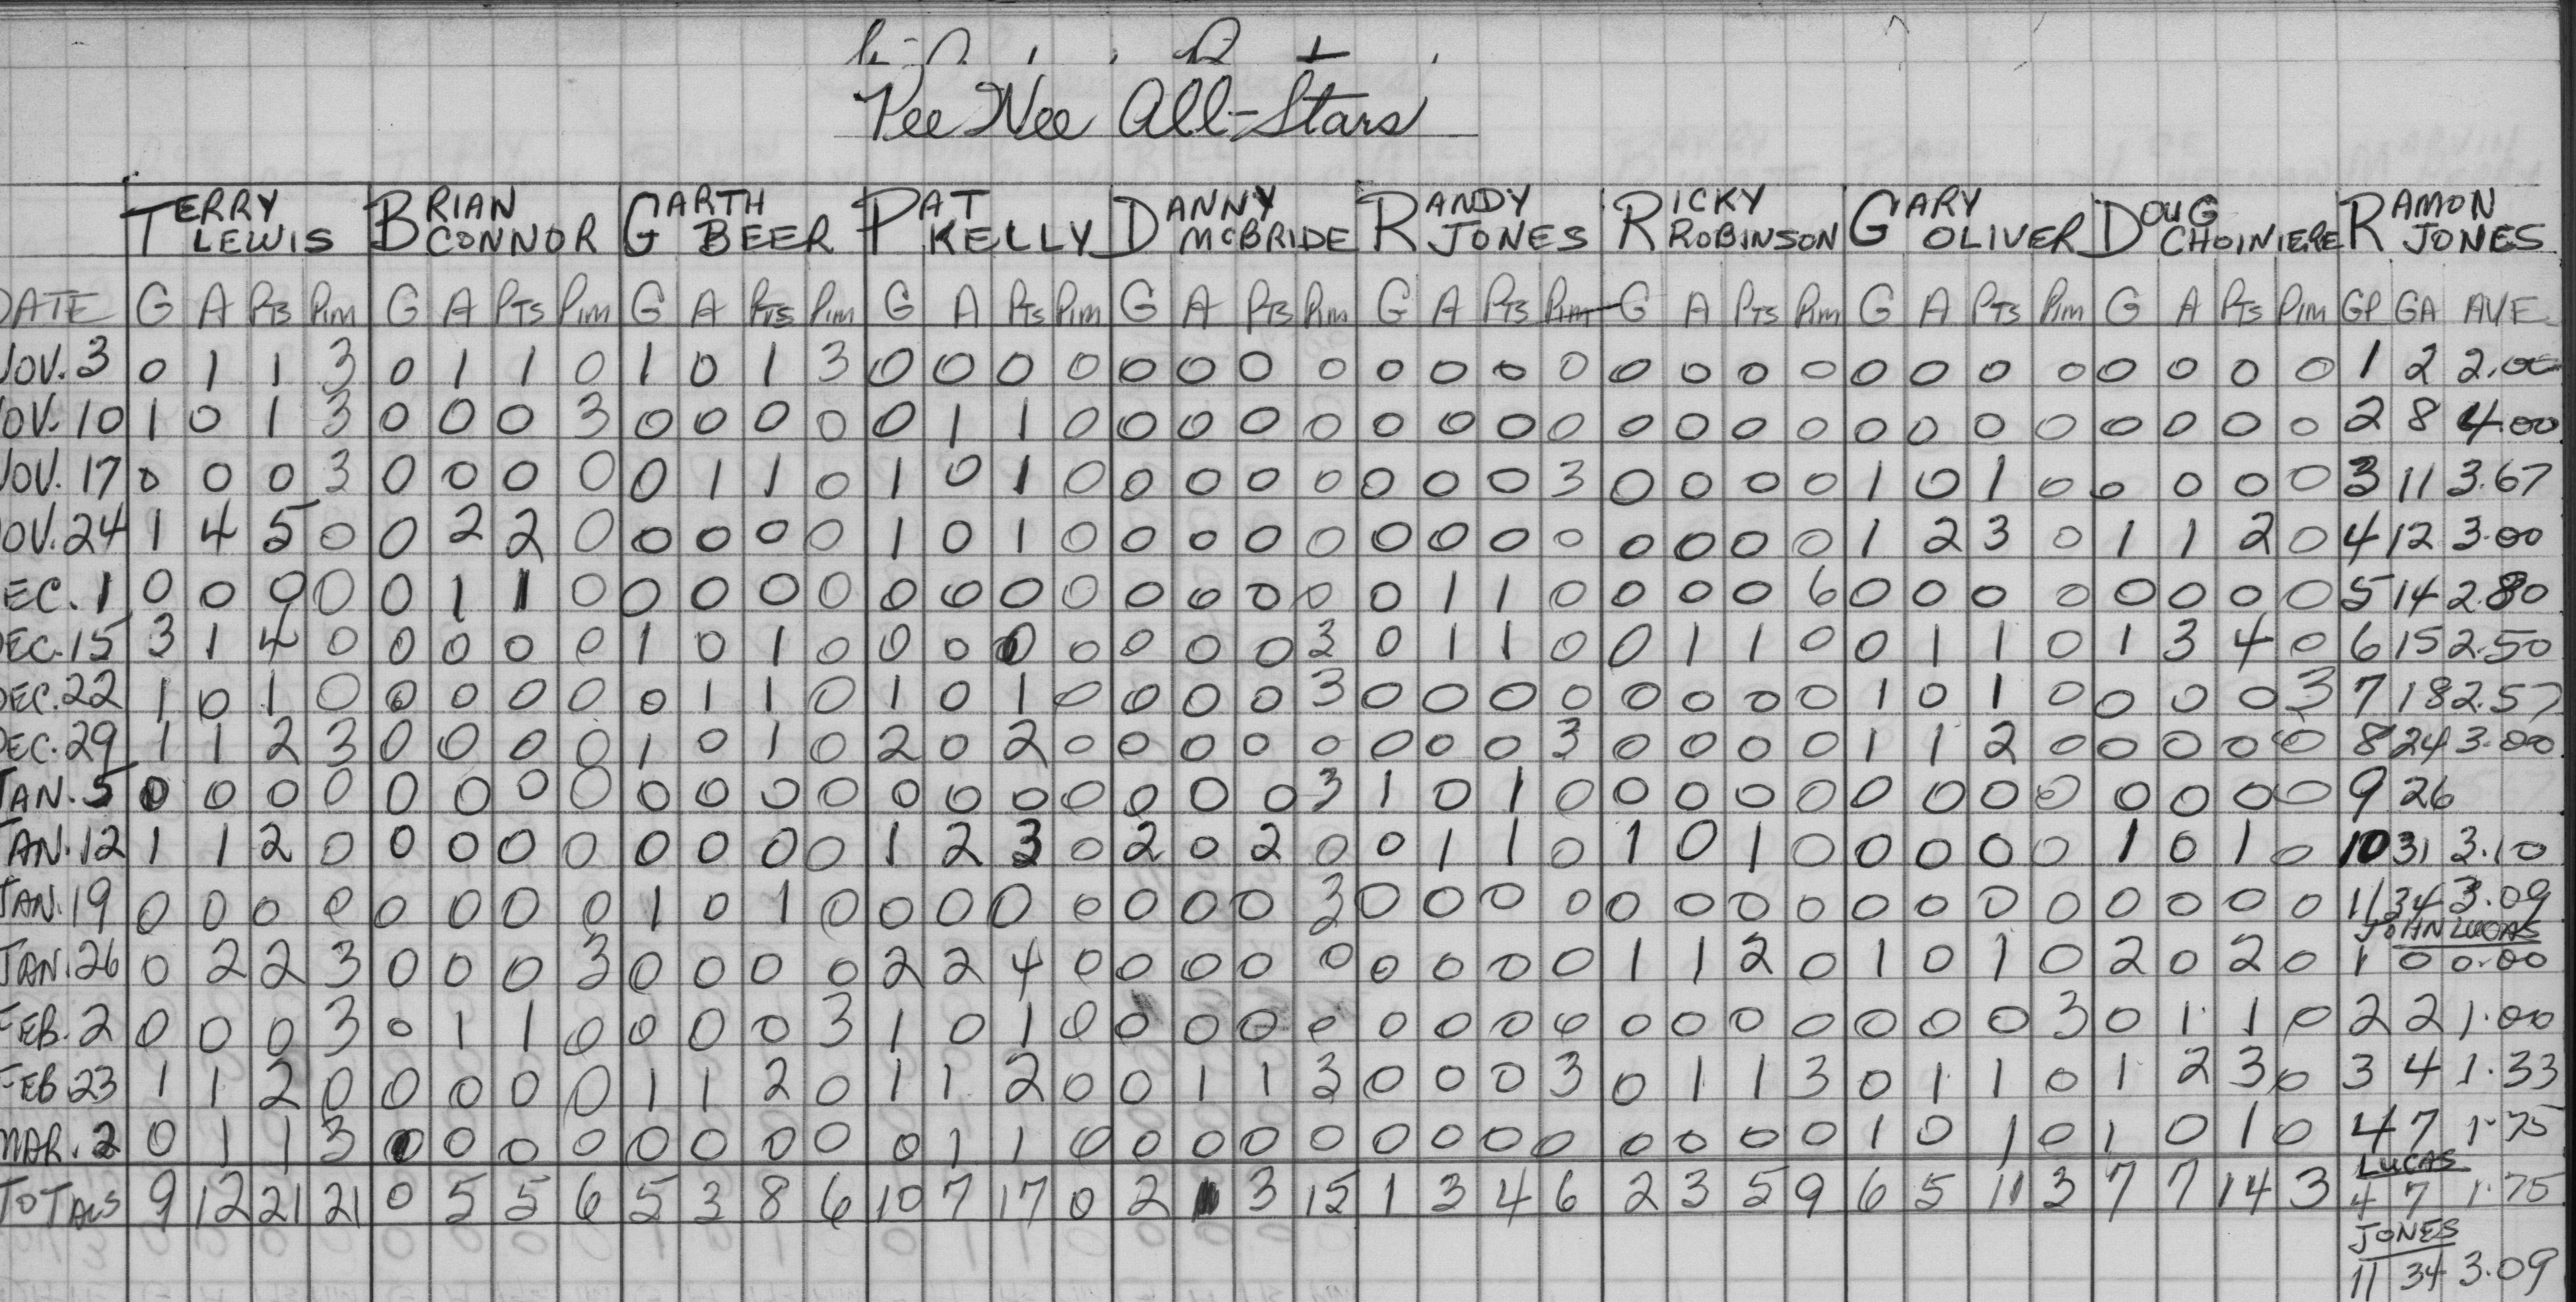 Pee Wee All-Stars
TERRY LEWIS BRIAN CONNOR GARTH BEER PAT KELLY DANNY MCBRIDE RANDY JONES RICKY ROBINSON GARY OLIVER DOUG CHOINIERE RAMON JONES
DATE G A PTS PIM G A PTS PIM G A PTS PIM G A PTS PIM G A PTS PIM G A PTS PIM G A PTS PIM G A PTS PIM G A PTS PIM GP GA AVE
NOV. 3 0 1 1 3 0 1 1 0 1 0 1 3 0 0 0 0 0 0 0 0 0 0 0 0 0 0 0 0 0 0 0 0 0 0 0 0 1 2 2.00
NOV. 10 1 0 1 3 0 0 0 3 0 0 0 0 0 1 1 0 0 0 0 0 0 0 0 0 0 0 0 0 0 0 0 0 0 0 0 0 2 8 4.00
NOV. 17 0 0 0 3 0 0 0 0 0 1 1 0 1 0 1 0 0 0 0 0 0 0 0 3 0 0 0 0 1 0 1 0 0 0 0 0 3 11 3.67
NOV. 24 1 4 5 0 0 2 2 0 0 0 0 0 1 0 1 0 0 0 0 0 0 0 0 0 0 0 0 0 1 2 3 0 1 1 2 0 4 12 3.00
DEC. 1 0 0 0 0 0 1 1 0 0 0 0 0 0 0 0 0 0 0 0 0 0 1 1 0 0 0 0 6 0 0 0 0 0 0 0 0 5 14 2.80
DEC. 15 3 1 4 0 0 0 0 0 1 0 1 0 0 0 0 0 0 0 0 3 0 1 1 0 0 1 1 0 0 1 1 0 1 3 4 0 6 15 2.50
DEC. 22 1 0 1 0 0 0 0 0 0 1 1 0 1 0 1 0 0 0 0 3 0 0 0 0 0 0 0 0 1 0 1 0 0 0 0 3 7 18 2.57
DEC. 29 1 1 2 3 0 0 0 0 1 0 1 0 2 0 2 0 0 0 0 0 0 0 0 3 0 0 0 0 1 1 2 0 0 0 0 0 8 24 3.00
JAN. 5 0 0 0 0 0 0 0 0 0 0 0 0 0 0 0 0 0 0 0 3 1 0 1 0 0 0 0 0 0 0 0 0 0 0 0 0 9 26
JAN. 12 1 1 2 0 0 0 0 0 0 0 0 0 1 2 3 0 2 0 2 0 0 1 1 0 1 0 1 0 0 0 0 0 1 0 1 0 10 31 3.10
JAN. 19 0 0 0 0 0 0 0 0 1 0 1 0 0 0 0 0 0 0 0 3 0 0 0 0 0 0 0 0 0 0 0 0 0 0 0 0 11 34 3.09
JOHN LUCAS
JAN. 26 0 2 2 3 0 0 0 3 0 0 0 0 2 2 4 0 0 0 0 0 0 0 0 0 1 1 2 0 1 0 1 0 2 0 2 0 1 0 0.00
FEB. 2 0 0 0 3 0 1 1 0 0 0 0 3 1 0 1 0 0 0 0 0 0 0 0 0 0 0 0 0 0 0 0 3 0 1 1 0 2 2 1.00
FEB 23 1 1 2 0 0 0 0 0 1 1 2 0 1 1 2 0 0 1 1 3 0 0 0 3 0 1 1 3 0 1 1 0 1 2 3 0 3 4 1.33
MAR. 2 0 1 1 3 0 0 0 0 0 0 0 0 0 1 1 0 0 0 0 0 0 0 0 0 0 0 0 0 1 0 1 0 1 0 1 0 4 7 1.75
LUCAS
TOTALS 9 12 21 21 0 5 5 6 5 3 8 6 10 7 17 0 2 1 3 15 1 3 4 6 2 3 5 9 6 5 11 3 7 7 14 3 4 7 1.75
JONES
11 34 3.09